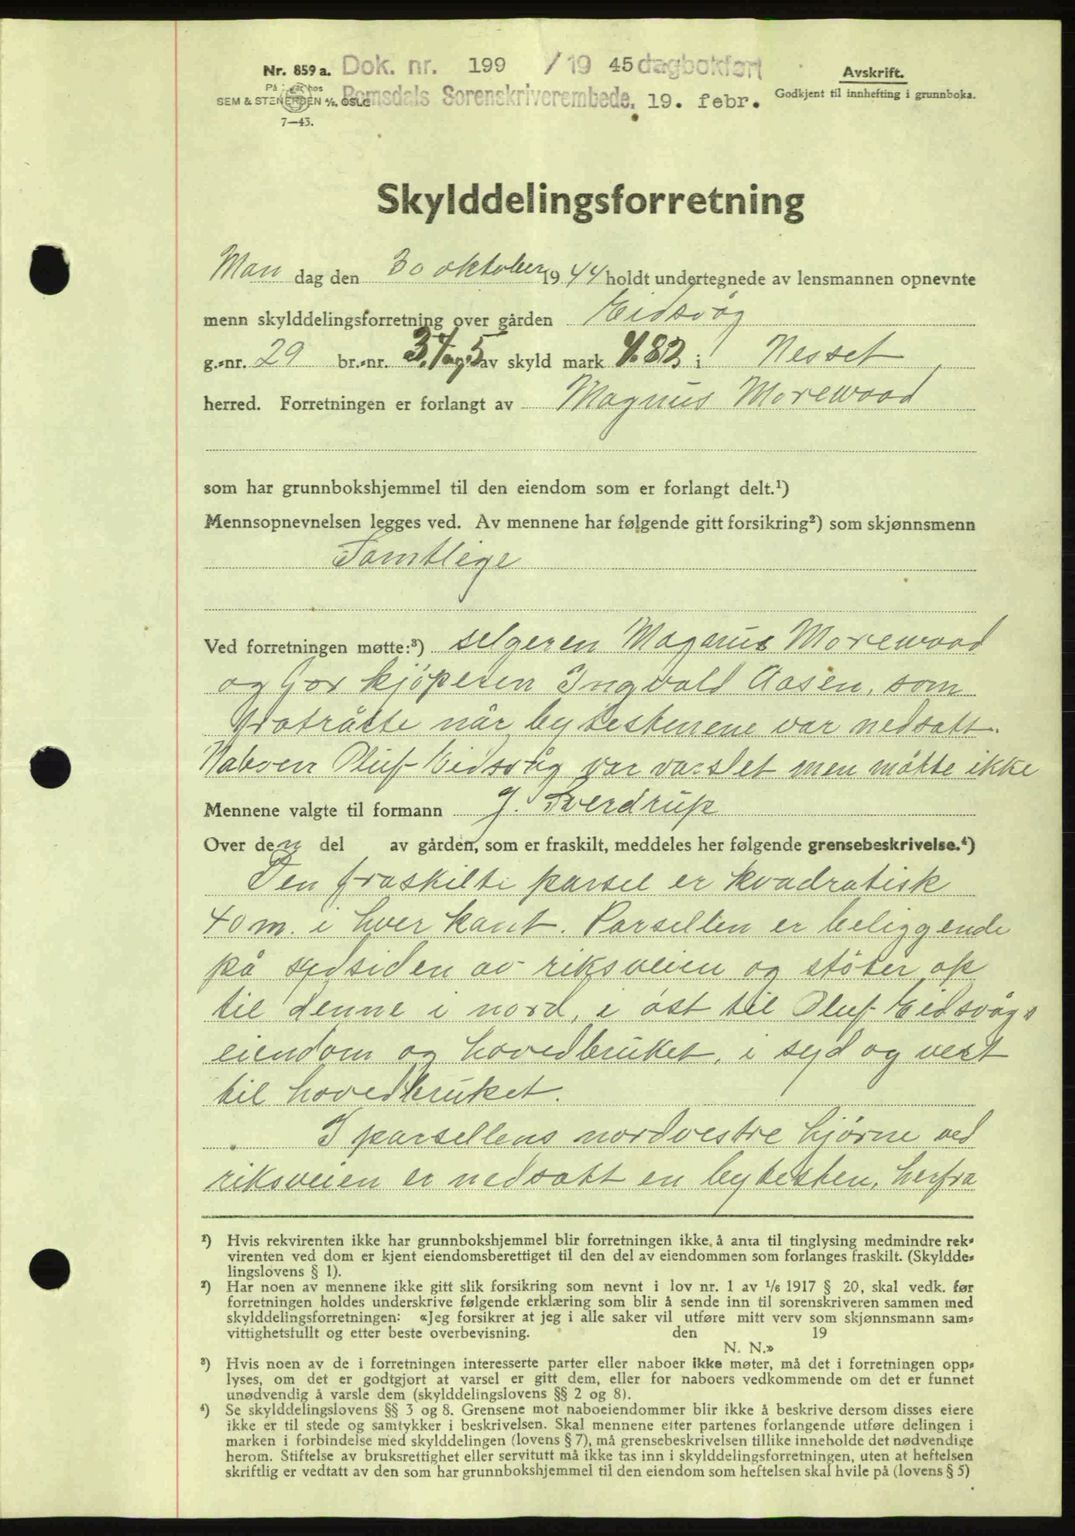 Nr. 859 a. Dok. nr. 199 /19 45 dagbokført
SEM & STENERSEN A/S, OSLO Romsdals Sorenskriverembede, 19. febr.
7—43.
Avskrift.
Godkjent til innhefting i grunnboka.
Skylddelingsforretning
Mandag den 30 oktober 1944 holdt undertegnede av lensmannen opnevnte
menn skylddelingsforretning over gården Eidsvåg
g.-nr. 29 br.-nr. 3.4 og 5 av skyld mark 4.83 i Nesset
herred. Forretningen er forlangt av Magnus Morewood
som har grunnbokshjemmel til den eiendom som er forlangt delt.¹)
Mennsopnevnelsen legges ved. Av mennene har følgende gitt forsikring²) som skjønnsmenn
Samtlige
Ved forretningen møtte:³) selgeren Magnus Morewood
og for kjöperen Ingvald Aasen, som
når bytestenene var nedsatt.
Naboen Oluf Eidsvåg var varslet men møtte ikke
Mennene valgte til formann J. Sverdrup
Over den del av gården, som er fraskilt, meddeles her følgende grensebeskrivelse.⁴)
Den fraskilte parsel er kvadratisk
40 m. i hver kant. Parsellen er beliggende
på sydsiden av riksveien og støter op
til denne i nord, i øst til Oluf Eidsvågs
eiendom og hovedbruket, i syd og vest
til hovedbruket.
I parsellens nordvestre hjørne ved
riksveien er nedsatt en bytesten, herfra
¹) Hvis rekvirenten ikke har grunnbokshjemmel blir forretningen ikke å anta til tinglysing medmindre rek-
virenten ved dom er kjent eiendomsberettiget til den del av eiendommen som forlanges fraskilt. (Skyldde-
lingslovens § 1).
²) Har noen av mennene ikke gitt slik forsikring som nevnt i lov nr. 1 av ¹/₆ 1917 § 20, skal vedk. før
forretningen holdes underskrive følgende erklæring som blir å sende inn til sorenskriveren sammen med
skylddelingsforretningen: «Jeg forsikrer at jeg i alle saker vil utføre mitt verv som skjønnsmann sam-
vittighetsfullt og etter beste overbevisning. den 19
N. N.»
³) Hvis noen av de i forretningen interesserte parter eller naboer ikke møter, må det i forretningen opp-
lyses, om det er godtgjort at varsel er gitt dem, eller for naboers vedkommende om det er funnet
unødvendig å varsle dem (skylddelingslovens §§ 2 og 8).
⁴) Se skylddelingslovens §§ 3 og 8. Grensene mot naboeiendommer blir ikke å beskrive dersom disses eiere
ikke er til stede og samtykker i beskrivelsen. Skal mennene etter partenes forlangende utføre delingen i
marken i forbindelse med skylddelingen (lovens § 7), må grensebeskrivelsen tillike inneholde det nødvendige
herom. Stiftelse av bruksrettighet eller servitutt må ikke tas inn i skylddelingsforretningen, uten at heftelsen
skriftlig er vedtatt av den som har grunnbokshjemmel til den eiendom som heftelsen skal hvile på (lovens § 5)